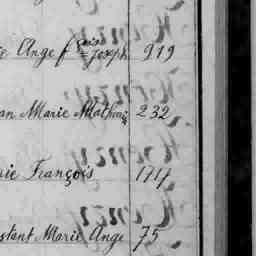 Ange f çois Joseph 919
Marie Mathurin 232
rie François 174
nstant Marie Ange 75